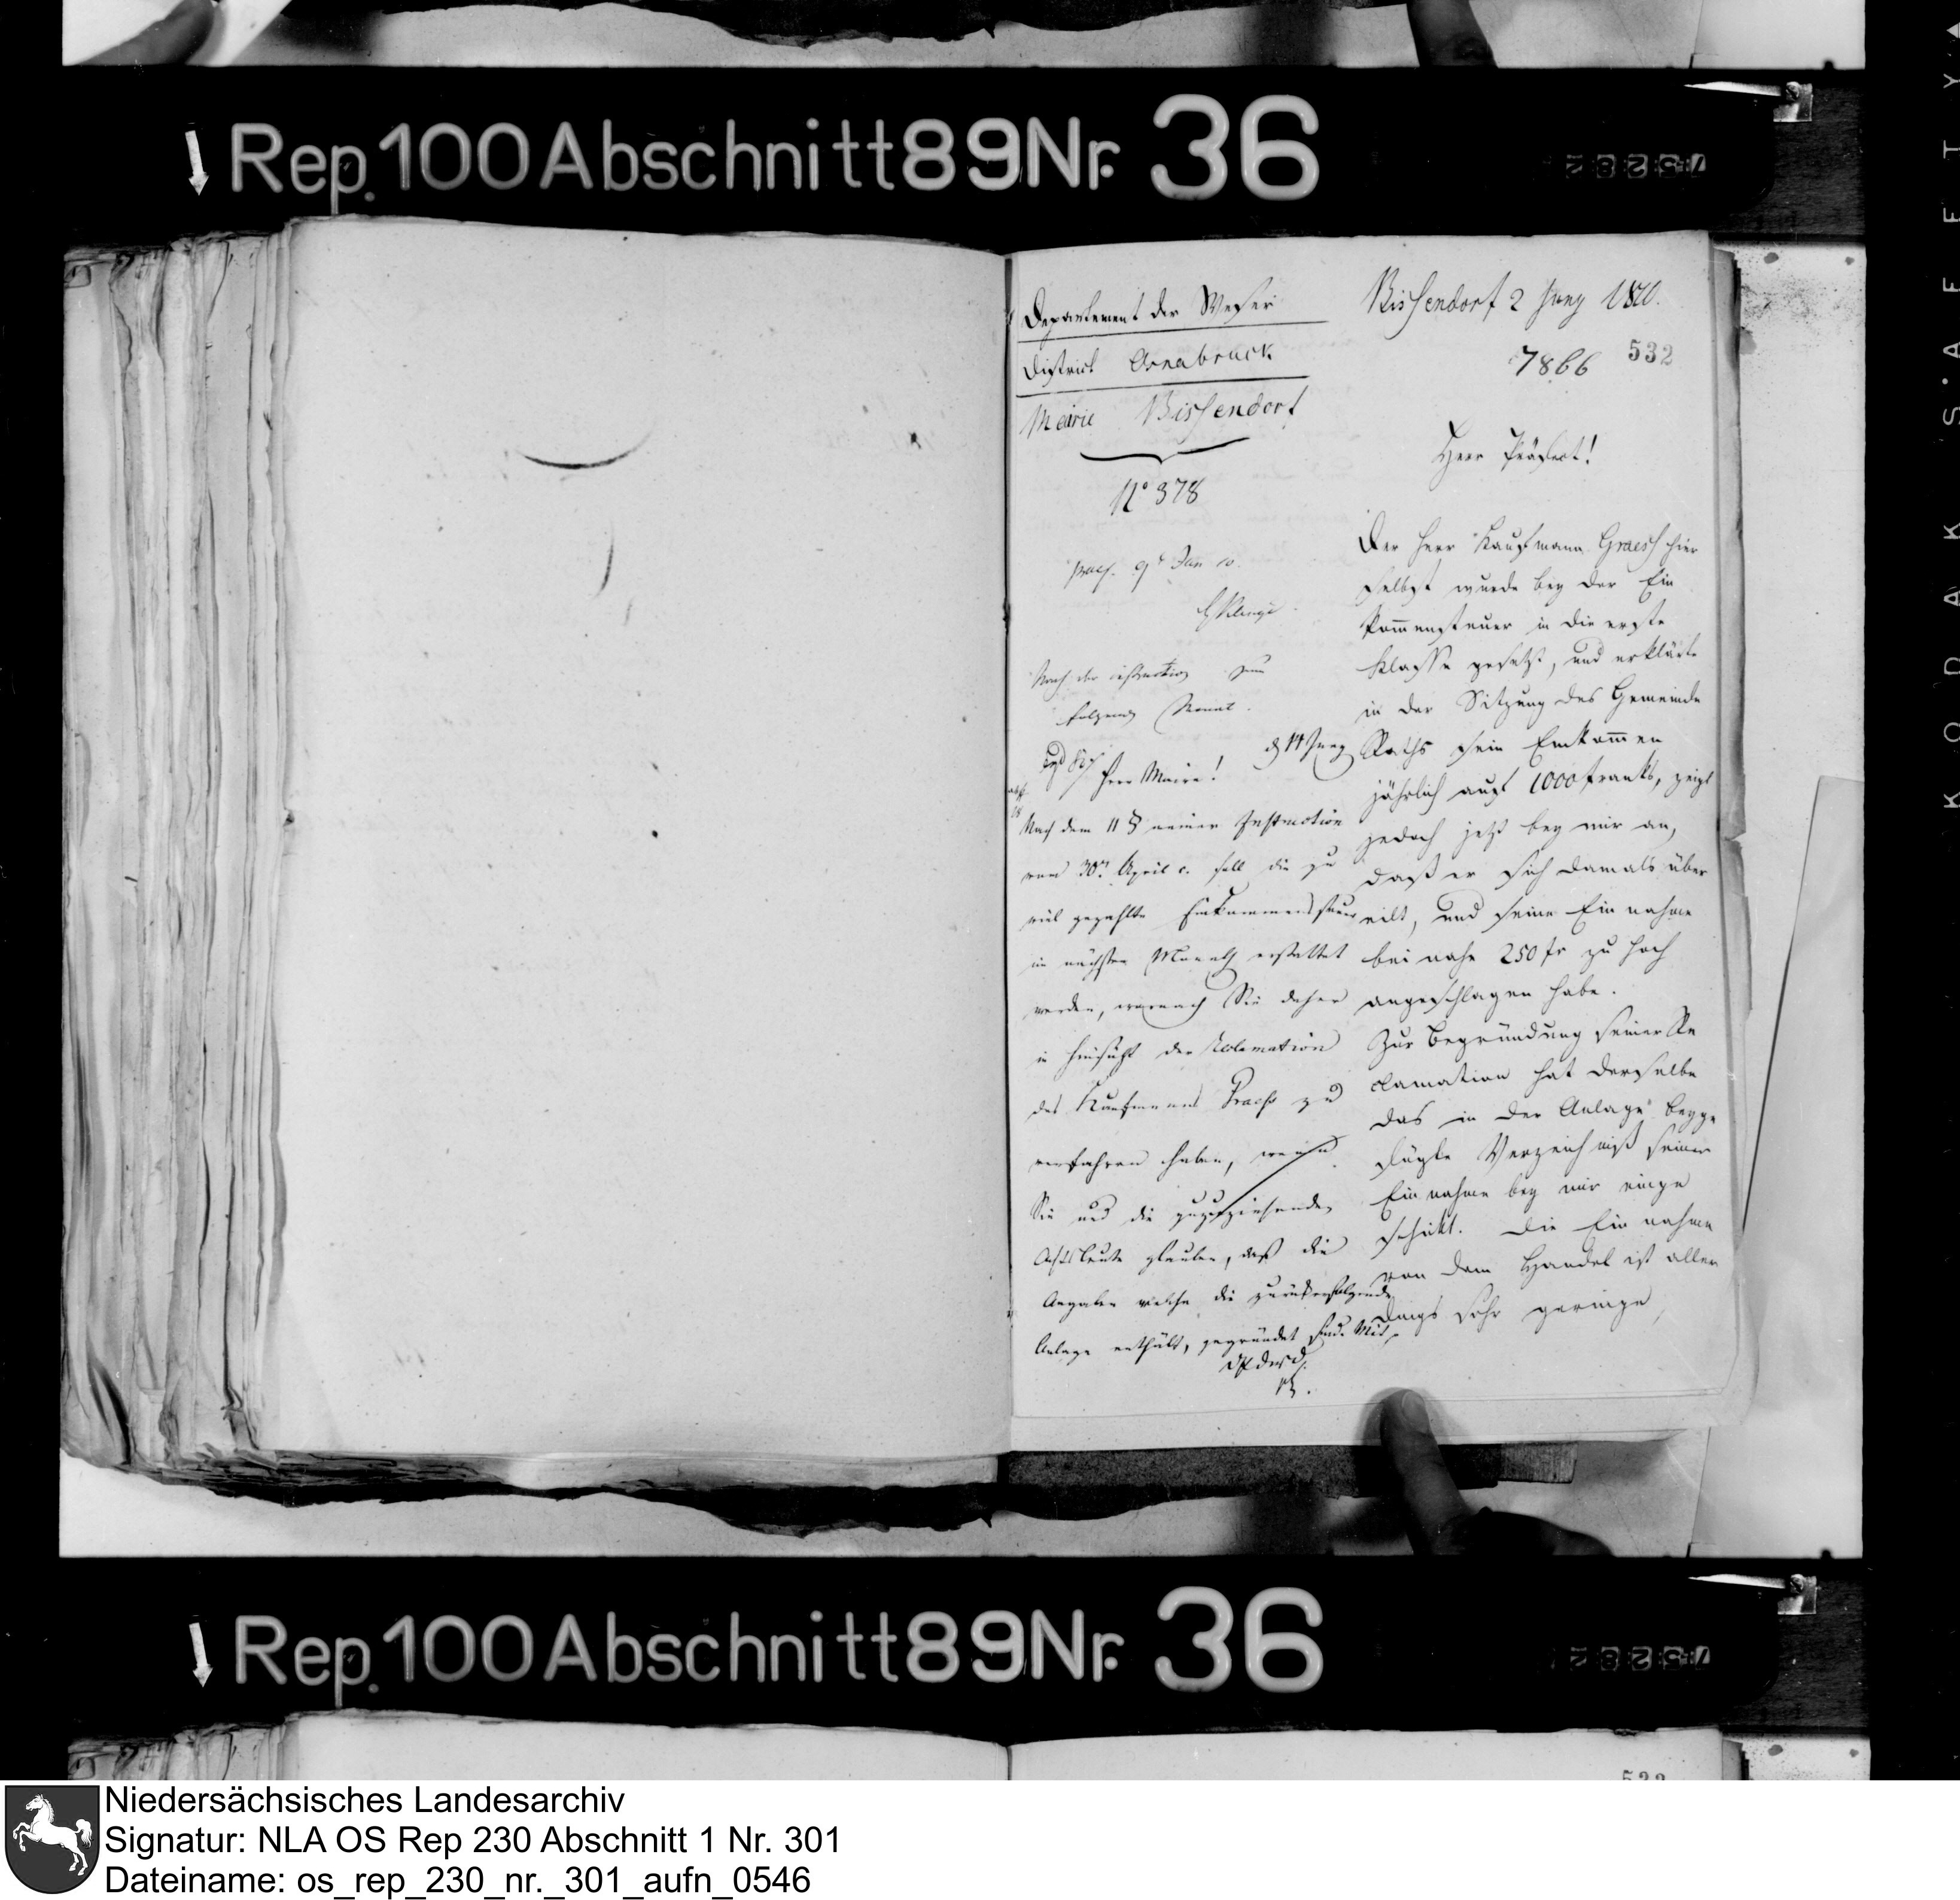 Rep. 100 Abschnitt 89 Nr. 36
Departement der Weser
District Osnabruck
Mairie Bissendorf
N° 378
Bissendorf 2 Juny 1810.
7866 532
Herr Präfect!
Der Herr Kaufmann Graess hier
selbst wurde bey der Ein
kom̅ensteuer in die erste
Klasse gesetzt, und erklärte
in der Sitzung des Gemeinde
Raths sein Einkom̅en
jährlich auf 1000 franks, zeigt
jedoch jetzt bey mir an,
daß er sich damals über
eilt, und seine Einnahme
beinahe 250 fr zu hoch
angeschlagen habe.
Zur Begründung seiner Re
clamation hat derselbe
das in der Anlage beyge
fügte Verzeichniß seiner
Einnahme bey mir einge
schickt. Die Einnahme
von dem Handel ist aller
dings sehr geringe,
praes. 9t Jun 10.
Nach der instruction zum
folgenden Monat.
d 14 Juny
Herr Maire!
Nach dem 11 § meiner Instruction
vom 30n April c. soll die zu
viel gezahlte Einkommensteuer
im nächsten Monath erstattet
werden, wornach Sie daher
in hinsicht der Reclamation
des Kaufmanns Graess zu
verfahren haben, wenn
Sie und die zuzuziehenden
Achtsleute glauben, daß die
Angaben welche die zurückerfolgende
Anlage enthält, gegründet sind. Mit
Rep. 100 Abschnitt 89 Nr. 36
KODAK SAFETY
Niedersächsisches Landesarchiv
Signatur: NLA OS Rep 230 Abschnitt 1 Nr. 301
Dateiname: os_rep_230_nr._301_aufn_0546